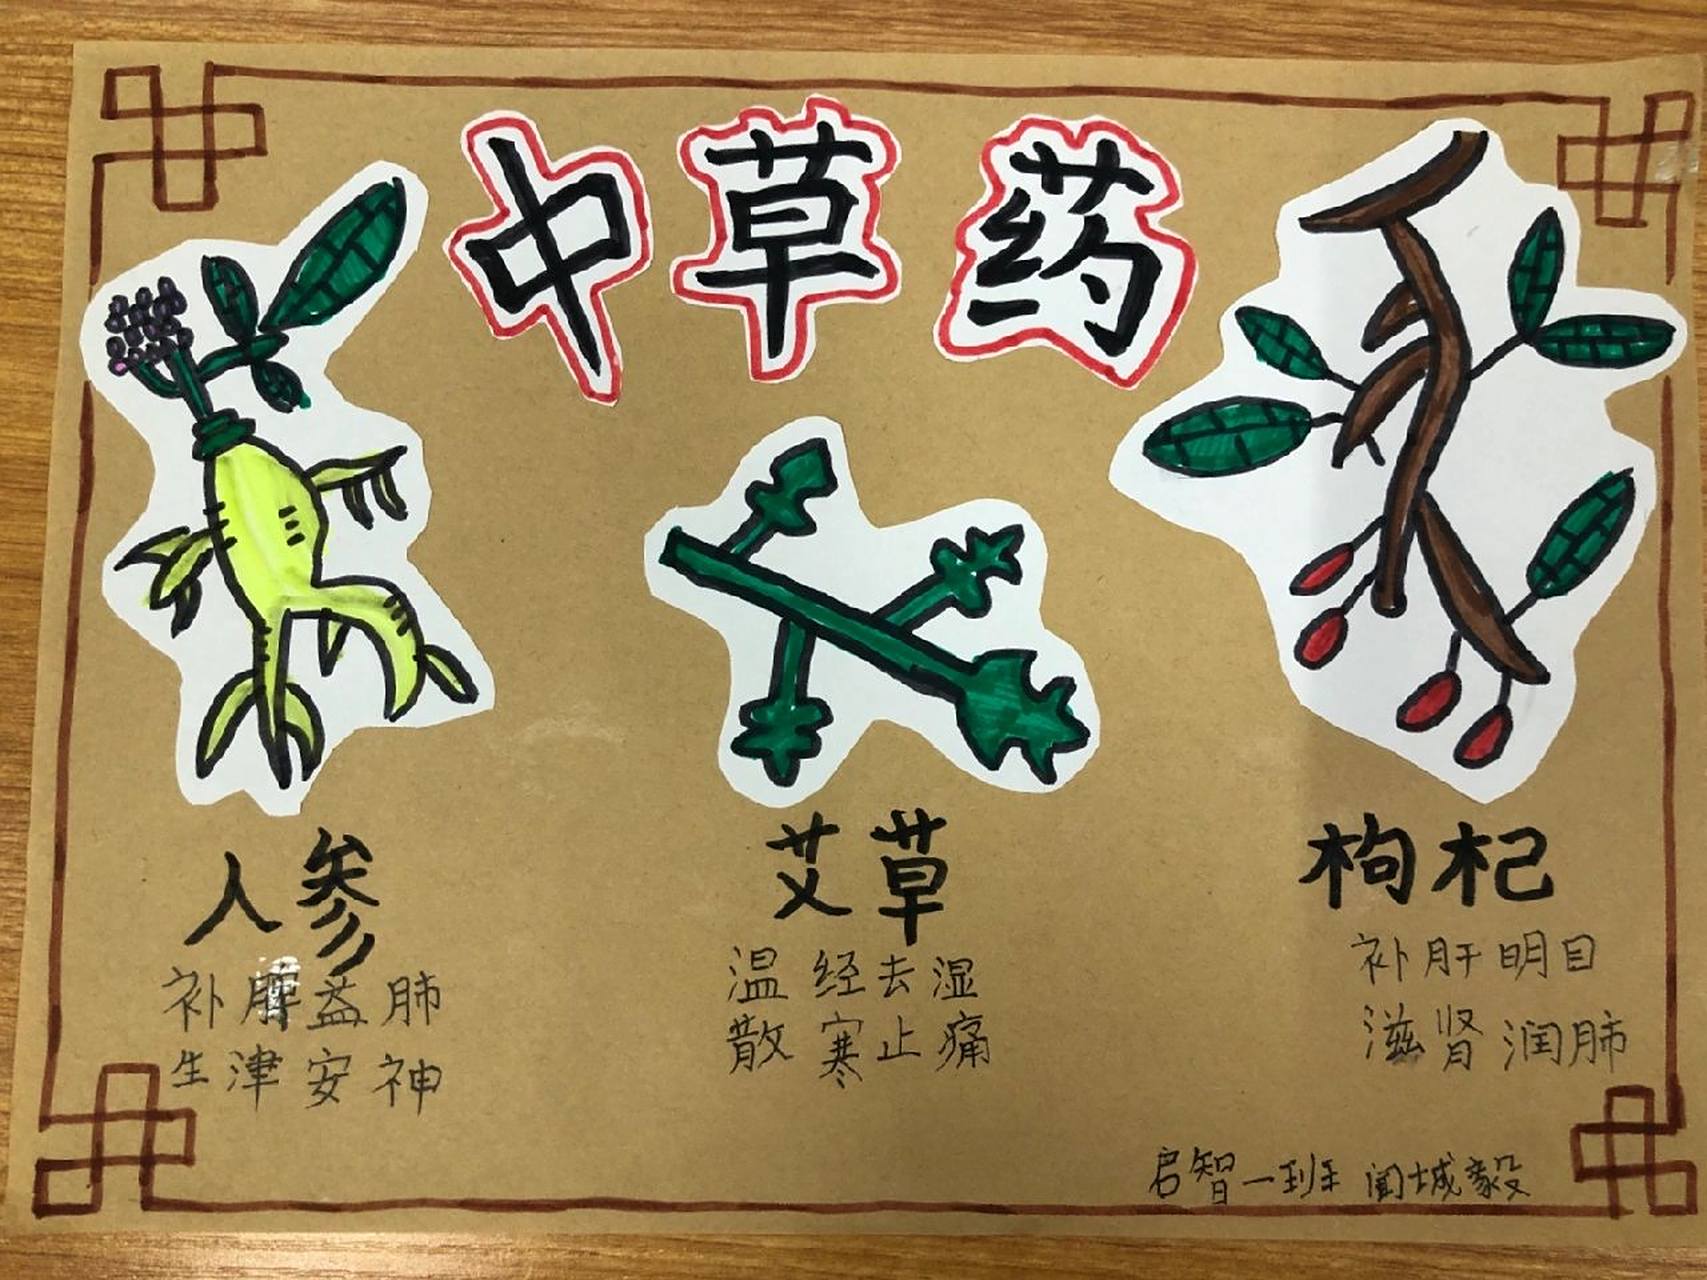 中草药
人参
补脾益肺
生津安神
艾草
温经去湿
散寒止痛
枸杞
补肝明目
滋肾润肺
启智一班 闻城毅